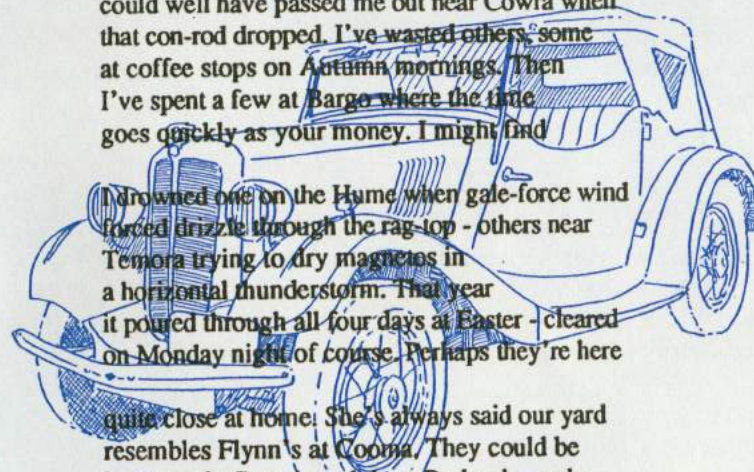 could well have passed me out near Cowra when
that con-rod dropped. I've wasted others, some
at coffee stops on Autumn mornings. Then
I've spent a few at Bargo where the time
goes quickly as your money. I might find
I drowned one on the Hume when gale-force wind
forced drizzle through the rag-top - others near
Temora trying to dry magnetos in
a horizontal thunderstorm. That year
it poured through all four days at Easter - cleared
on Monday night of course. Perhaps they're here
quite close at home. She's always said our yard
resembles Flynn's at Cooma. They could be